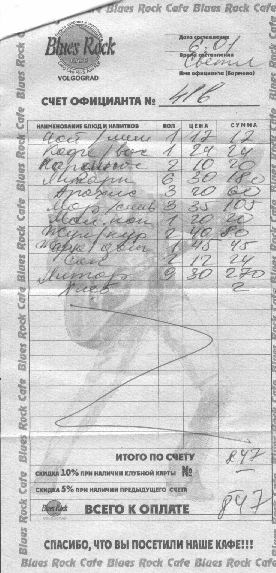 Blues Rock Cafe Blues Rock Cafe
Blues Rock
CAFE
VOLGOGRAD
Дата составления
6.01
Время составления
Светл
Имя официанта (бармена)
СЧЕТ ОФИЦИАНТА № 41В
НАИМЕНОВАНИЕ БЛЮД И НАПИТКОВ КОЛ ЦЕНА СУММА
1 12 12
1 24 24
2 10 20
6 30 180
3 20 60
3 35 105
1 20 20
2 40 80
1 45 45
Сок 2 12 24
9 30 270
Хлеб 2
ИТОГО ПО СЧЕТУ 847
СКИДКА 10% ПРИ НАЛИЧИИ КЛУБНОЙ КАРТЫ №
СКИДКА 5% ПРИ НАЛИЧИИ ПРЕДЫДУЩЕГО СЧЕТА
Blues Rock ВСЕГО К ОПЛАТЕ 847
СПАСИБО, ЧТО ВЫ ПОСЕТИЛИ НАШЕ КАФЕ!!!
Blues Rock Cafe Blues Rock Cafe Blues Rock Cafe